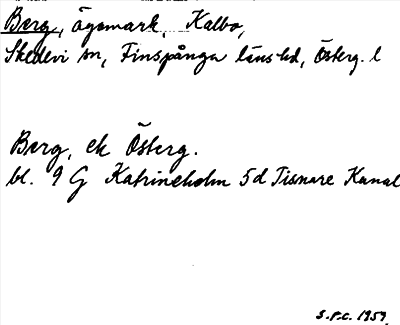 Berg, ägomark, Kalbo,
Skedevi sn, Finspånga länshd, Österg. l
Berg, ek Österg.
bl. 9 G Katrineholm 5d Tisnare Kanal
S.P.C. 1959.